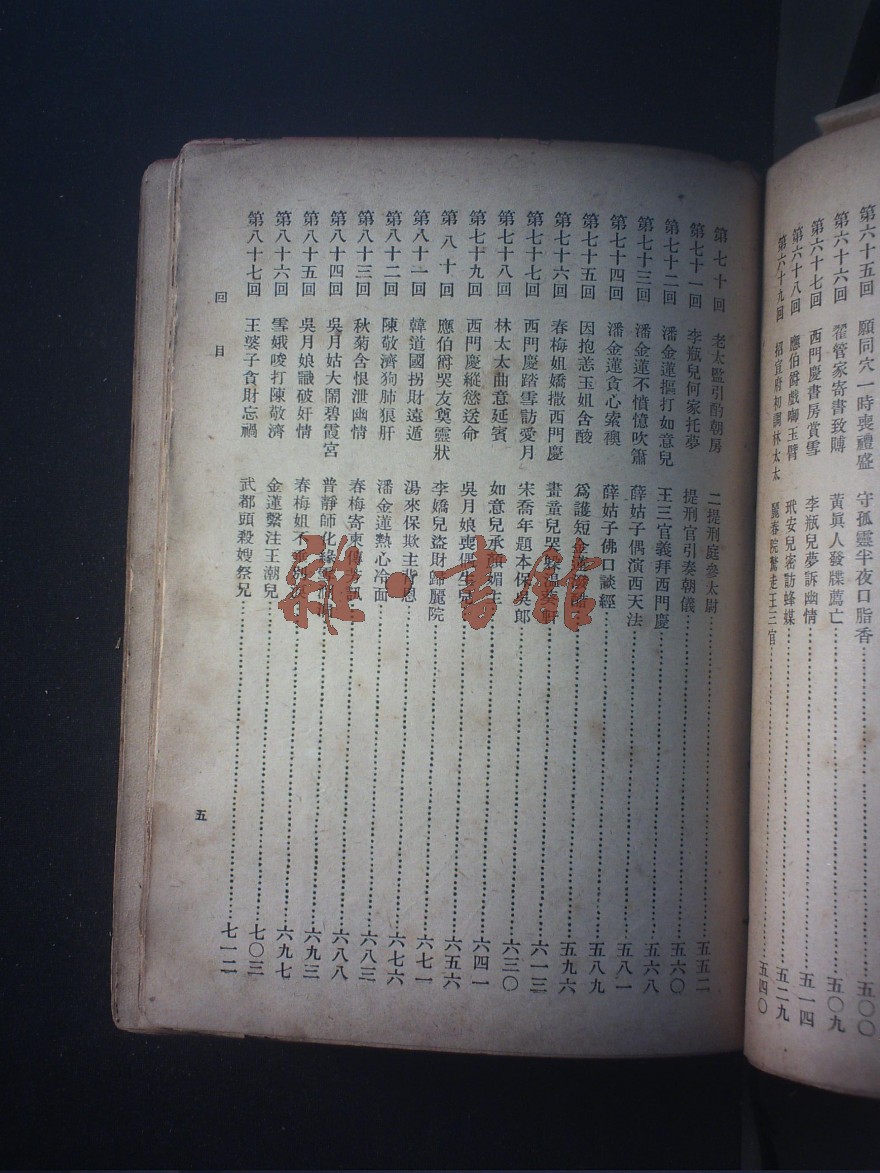 第六十五回 願同穴一時喪禮盛 守孤靈半夜口脂香……五〇〇
第六十六回 翟管家寄書致賻 黃眞人發牒薦亡……五〇九
第六十七回 西門慶書房賞雪 李瓶兒夢訴幽情……五一四
第六十八回 應伯爵戲啣玉臂 玳安兒密訪蜂媒……五二九
第六十九回 招宣府初調林太太 麗春院驚走王三官……五四〇
第七十回 老太監引酌朝房 二提刑庭參太尉……五五二
第七十一回 李瓶兒何家托夢 提刑官引奏朝儀……五六〇
第七十二回 潘金蓮摳打如意兒 王三官義拜西門慶……五六八
第七十三回 潘金蓮不憤憶吹簫 薛姑子偶演西天法……五八一
第七十四回 潘金蓮貪心索襖 薛姑子佛口談經……五八九
第七十五回 因抱恙玉姐含酸 爲護短金蓮潑醋……五九六
第七十六回 春梅姐嬌撒西門慶 畫童兒哭躲溫葵軒……六一三
第七十七回 西門慶踏雪訪愛月 宋喬年題本保吳郎……六三〇
第七十八回 林太太曲意延賓 如意兒承顏媚主……六四一
第七十九回 西門慶縱慾送命 吳月娘喪偶生兒……六五六
第八十回 應伯爵哭友奠靈狀 李嬌兒盜財歸麗院……六七一
第八十一回 韓道國拐財遠遁 湯來保欺主背恩……六七六
第八十二回 陳敬濟狗肺狼肝 潘金蓮熱心冷面……六八三
第八十三回 秋菊含恨泄幽情 春梅寄柬傳芳訊……六八八
第八十四回 吳月姑大鬧碧霞宮 普靜師化緣雪澗洞……六九三
第八十五回 吳月娘識破奸情 春梅姐不垂別淚……六九七
第八十六回 雪娥唆打陳敬濟 金蓮繫注王潮兒……七〇三
第八十七回 王婆子貪財忘禍 武都頭殺嫂祭兄……七一二
回目
五
雜·書館